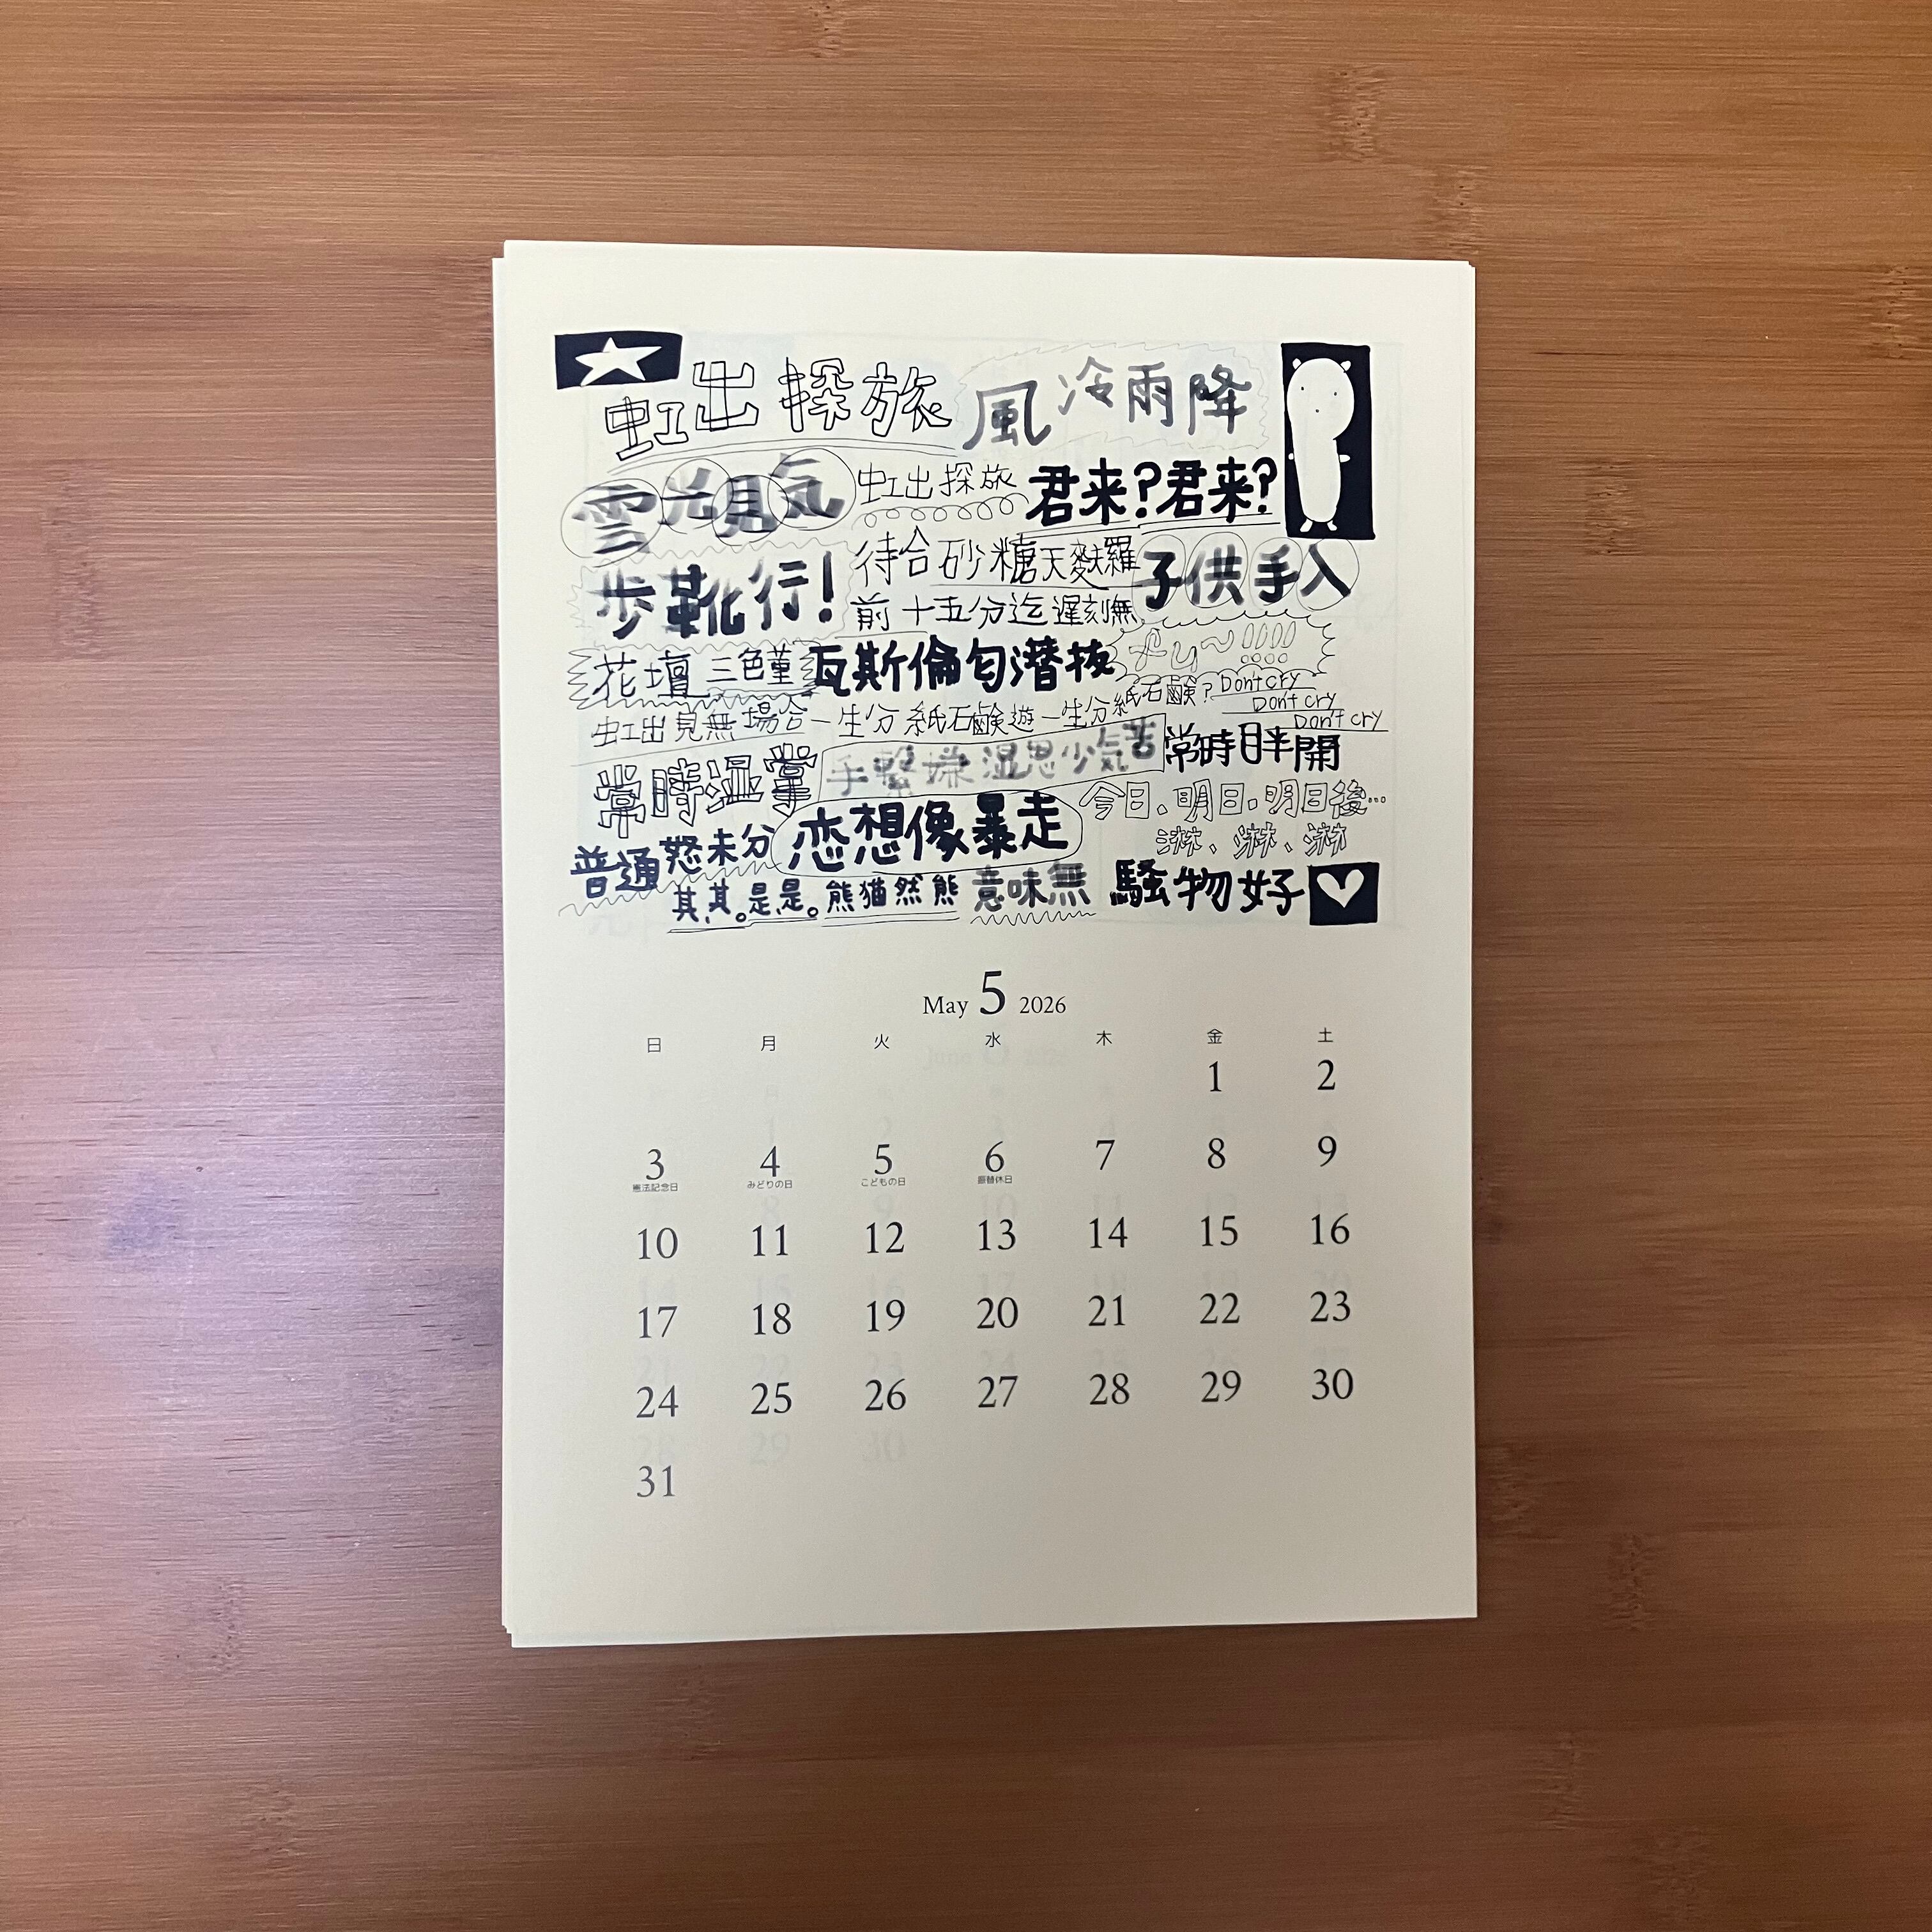 虹出探旅 風冷雨降
雲光見気 虹出探旅 君来?君来?
歩靴行! 待合砂糖天麩羅 子供手入
前十五分迄遅刻無
花壇三色菫 瓦斯倫匂潜抜 fu~!!!!
虹出見無場合一生分紙石鹸遊一生分紙石鹸? Don't cry
Don't cry
Don't cry
常時湿掌 手繋嫌湿思少気苦 常時眫開
普通怒未分 恋想像暴走 今日、明日、明日後…
淋、淋、淋
其、其。是、是。熊猫然熊 意味無 騒物好
May 5 2026
日 月 火 水 木 金 土
1 2
3 4 5 6 7 8 9
憲法記念日 みどりの日 こどもの日 振替休日
10 11 12 13 14 15 16
17 18 19 20 21 22 23
24 25 26 27 28 29 30
31